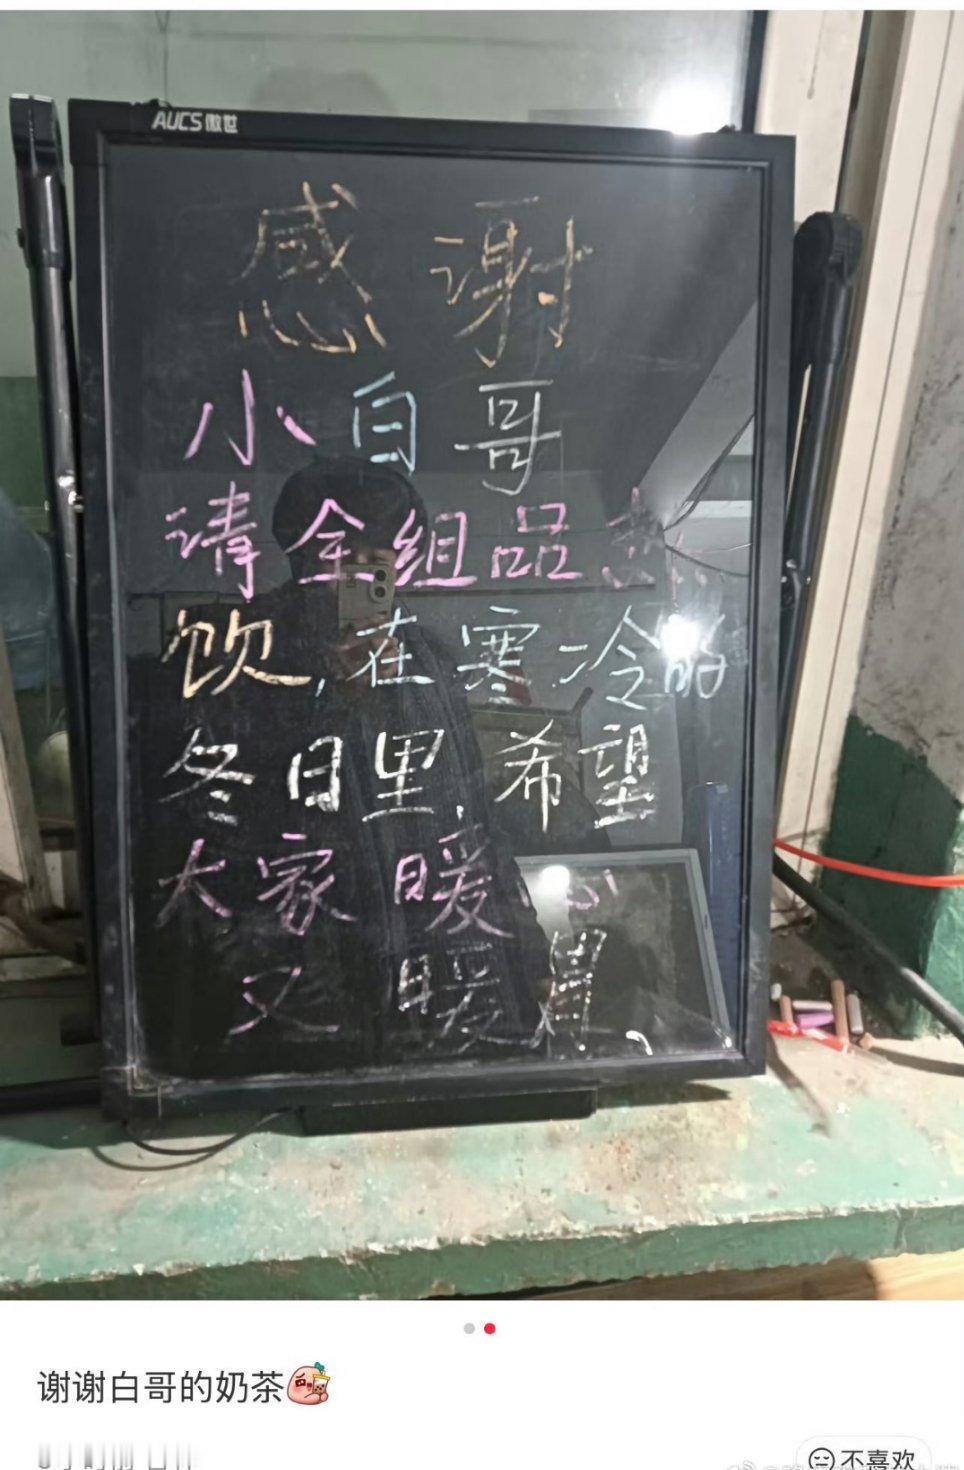 AUCS傲世
感谢
小白哥
请全组品
饮,在寒冷的
冬日里,希望
大家暖心
又暖胃、
谢谢白哥的奶茶
不喜欢